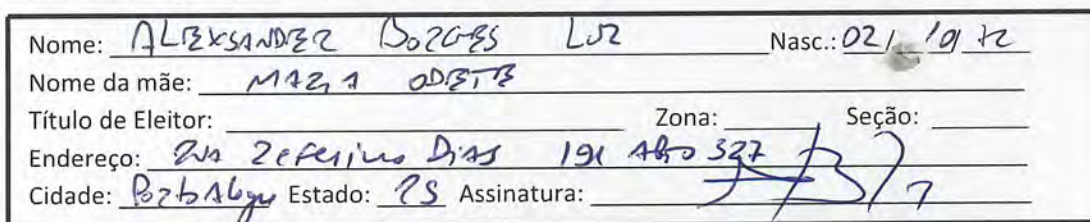 Nome: ALEXSANDER BORGES LUZ Nasc.: 02/ /1972
Nome da mãe: MARIA ODETE
Título de Eleitor: Zona: Seção:
Endereço: RUA Zeferino DIAS 191 APTO 327
Cidade: Porto Alegre Estado: RS Assinatura: